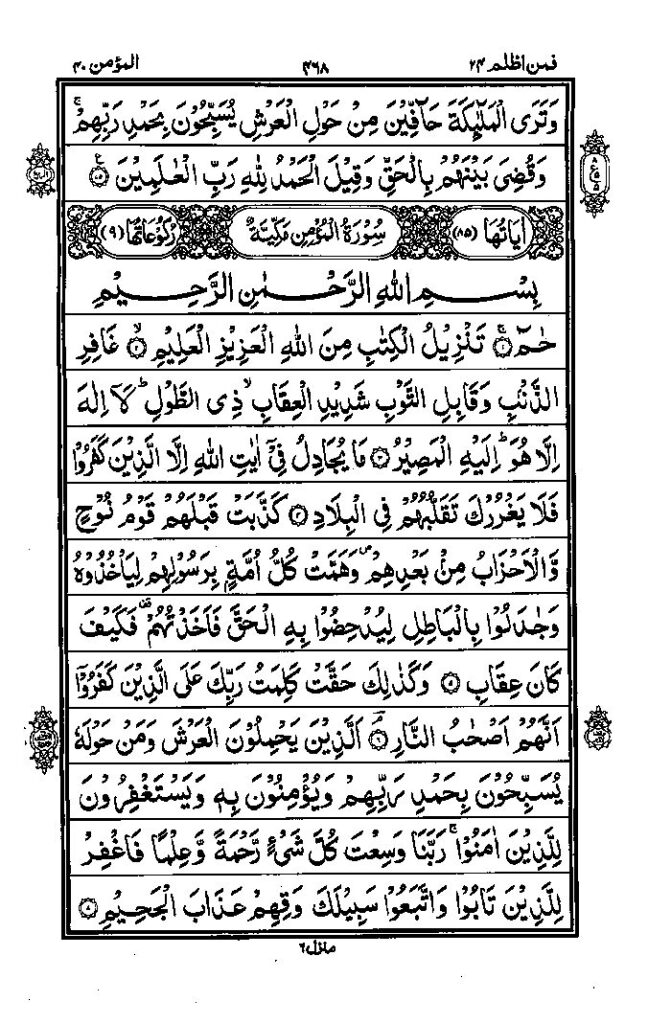 فمن اظلم ۲۴ ۴۶۸ المؤمن ۴۰
وَتَرَى الْمَلٰٓئِكَةَ حَآفِّيْنَ مِنْ حَوْلِ الْعَرْشِ يُسَبِّحُوْنَ بِحَمْدِ رَبِّهِمْ ۚ
وَقُضِىَ بَيْنَهُمْ بِالْحَقِّ وَقِيْلَ الْحَمْدُ لِلّٰهِ رَبِّ الْعٰلَمِيْنَ ﴿۷۵﴾
اٰيَاتُهَا (۸۵) سُوْرَةُ الْمُؤْمِنِ مَكِّيَّةٌ رُكُوْعَاتُهَا (۹)
بِسْمِ اللهِ الرَّحْمٰنِ الرَّحِيْمِ
حٰمٓ ۚ﴿۱﴾ تَنْزِيْلُ الْكِتٰبِ مِنَ اللهِ الْعَزِيْزِ الْعَلِيْمِ ۙ﴿۲﴾ غَافِرِ
الذَّنْۢبِ وَقَابِلِ التَّوْبِ شَدِيْدِ الْعِقَابِ ۙ ذِى الطَّوْلِ ؕ لَاۤ اِلٰهَ
اِلَّا هُوَ ؕ اِلَيْهِ الْمَصِيْرُ ﴿۳﴾ مَا يُجَادِلُ فِىْۤ اٰيٰتِ اللهِ اِلَّا الَّذِيْنَ كَفَرُوْا
فَلَا يَغْرُرْكَ تَقَلُّبُهُمْ فِى الْبِلَادِ ﴿۴﴾ كَذَّبَتْ قَبْلَهُمْ قَوْمُ نُوْحٍ
وَّالْاَحْزَابُ مِنْۢ بَعْدِهِمْ ۪ وَهَمَّتْ كُلُّ اُمَّةٍۭ بِرَسُوْلِهِمْ لِيَاْخُذُوْهُ
وَجٰدَلُوْا بِالْبَاطِلِ لِيُدْحِضُوْا بِهِ الْحَقَّ فَاَخَذْتُهُمْ ۟ فَكَيْفَ
كَانَ عِقَابِ ﴿۵﴾ وَكَذٰلِكَ حَقَّتْ كَلِمَتُ رَبِّكَ عَلَى الَّذِيْنَ كَفَرُوْۤا
اَنَّهُمْ اَصْحٰبُ النَّارِ ۘ﴿۶﴾ اَلَّذِيْنَ يَحْمِلُوْنَ الْعَرْشَ وَمَنْ حَوْلَهٗ
يُسَبِّحُوْنَ بِحَمْدِ رَبِّهِمْ وَيُؤْمِنُوْنَ بِهٖ وَيَسْتَغْفِرُوْنَ
لِلَّذِيْنَ اٰمَنُوْا ۚ رَبَّنَا وَسِعْتَ كُلَّ شَىْءٍ رَّحْمَةً وَّعِلْمًا فَاغْفِرْ
لِلَّذِيْنَ تَابُوْا وَاتَّبَعُوْا سَبِيْلَكَ وَقِهِمْ عَذَابَ الْجَحِيْمِ ﴿۷﴾
منزل ۶